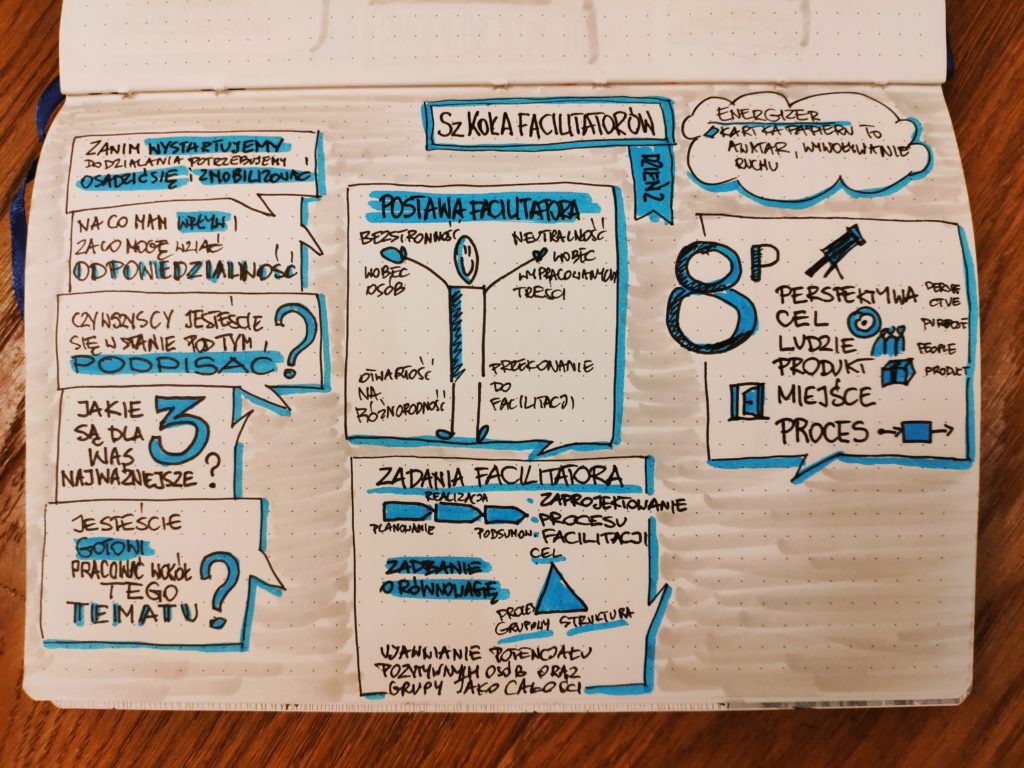 SZKOŁA FACILITATORÓW
DZIEŃ 2
ZANIM WYSTARTUJEMY
DO DZIAŁANIA POTRZEBUJEMY
OSADZIĆ SIĘ I ZMOBILIZOWAĆ
NA CO MAM WPŁYW I
ZA CO MOGĘ WZIĄĆ
ODPOWIEDZIALNOŚĆ
CZY WSZYSCY JESTEŚCIE
SIĘ W STANIE POD TYM
PODPISAĆ ?
JAKIE
SĄ DLA 3
WAS
NAJWAŻNIEJSZE ?
JESTEŚCIE
GOTOWI
PRACOWAĆ WOKÓŁ
TEGO
TEMATU ?
POSTAWA FACILITATORA
BEZSTRONNOŚĆ
WOBEC
OSÓB
NEUTRALNOŚĆ
WOBEC
WYPRACOWANYCH
TREŚCI
OTWARTOŚĆ
NA
RÓŻNORODNOŚĆ
PRZEKONANIE
DO
FACILITACJI
ZADANIA FACILITATORA
REALIZACJA
PLANOWANIE
PODSUMOW.
ZAPROJEKTOWANIE
PROCESU
FACILITACJI
ZADBANIE
O RÓWNOWAGĘ
CEL
PROCES
GRUPOWY STRUKTURA
UJAWNIANIE POTENCJAŁU
POZYTYWNYM OSÓB ORAZ
GRUPY JAKO CAŁOŚCI
ENERGIZER
KARTKA PAPIERU TO
AWATAR, WYWOŁYWANIE
RUCHU
8P
PERSPEKTYWA
CEL
LUDZIE
PRODUKT
MIEJSCE
PROCES
PEOPLE
PRODUKT